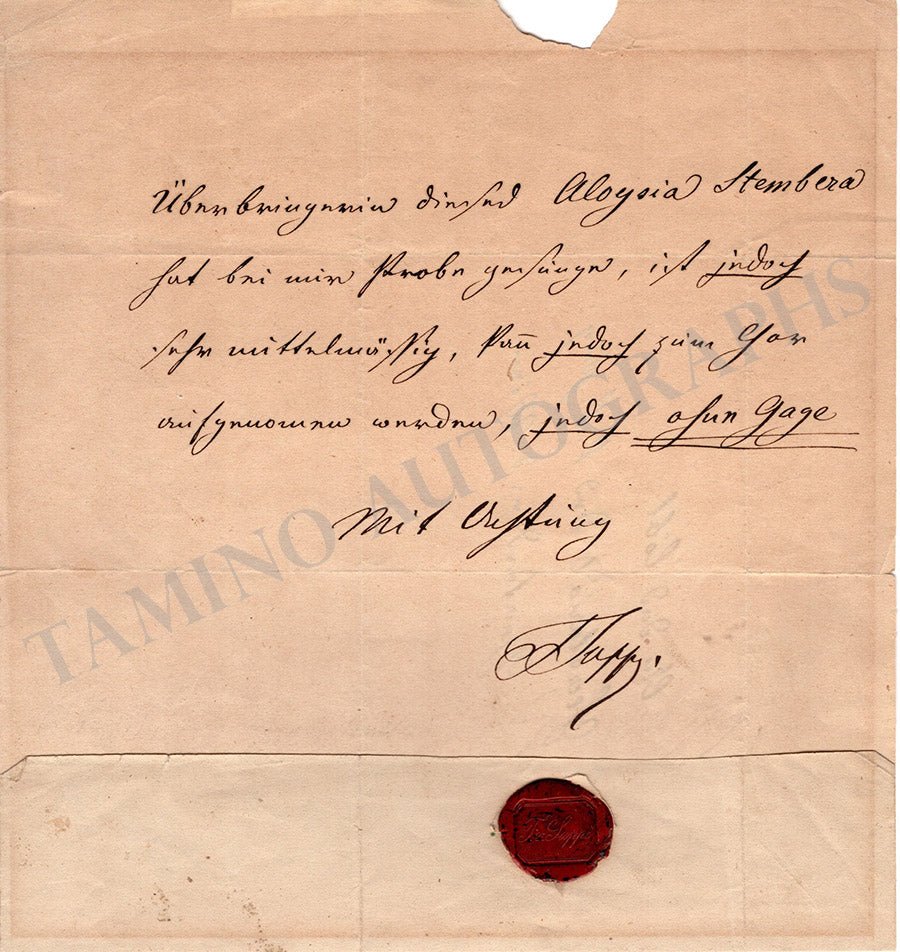 Überbringerin dieses Aloysia Stembera
hat bei mir Probe gesunge, ist jedoch
sehr mittelmässig, kan̄ jedoch zum Chor
aufgenomen werden, jedoch ohne Gage
Mit Achtung
FSuppé.
F. Suppé
TAMINO AUTOGRAPHS